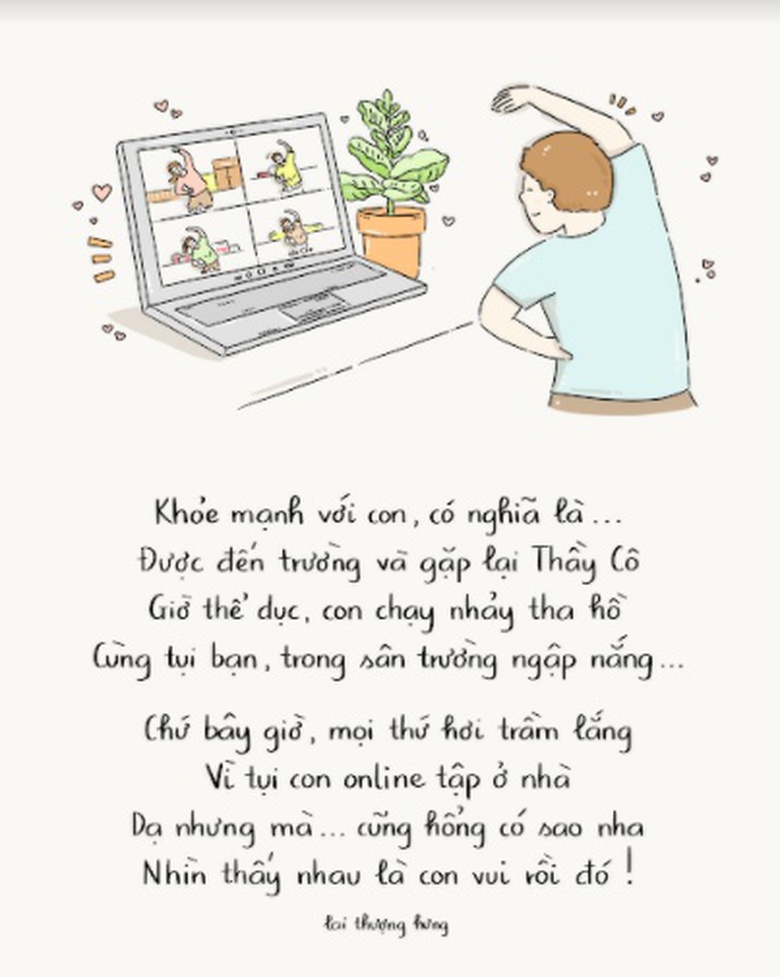 Khỏe mạnh với con, có nghĩa là...
Được đến trường và gặp lại Thầy Cô
Giờ thể dục, con chạy nhảy tha hồ
Cùng tụi bạn, trong sân trường ngập nắng...
Chứ bây giờ, mọi thứ hơi trầm lắng
Vì tụi con online tập ở nhà
Dạ nhưng mà... cũng hổng có sao nha
Nhìn thấy nhau là con vui rồi đó !
lai thượng hưng